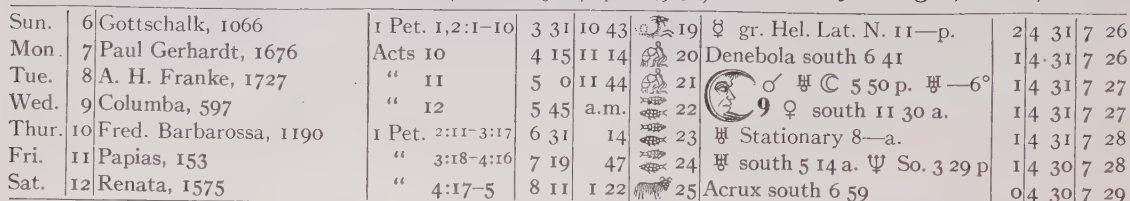 Sun. 6 Gottschalk, 1066 1 Pet. 1,2:1-10 3 31 10 43 19 ☿ gr. Hel. Lat. N. 11—p. 2 4 31 7 26
Mon. 7 Paul Gerhardt, 1676 Acts 10 4 15 11 14 20 Denebola south 6 41 1 4 31 7 26
Tue. 8 A. H. Franke, 1727 “ 11 5 0 11 44 21 ☌ ♅ ☾ 5 50 p. ♅ —6° 1 4 31 7 27
Wed. 9 Columba, 597 “ 12 5 45 a.m. 22 9 ♀ south 11 30 a. 1 4 31 7 27
Thur. 10 Fred. Barbarossa, 1190 1 Pet. 2:11-3:17 6 31 14 23 ♅ Stationary 8—a. 1 4 31 7 28
Fri. 11 Papias, 153 “ 3:18-4:16 7 19 47 24 ♅ south 5 14 a. ♆ So. 3 29 p 1 4 30 7 28
Sat. 12 Renata, 1575 “ 4:17-5 8 11 1 22 25 Acrux south 6 59 0 4 30 7 29